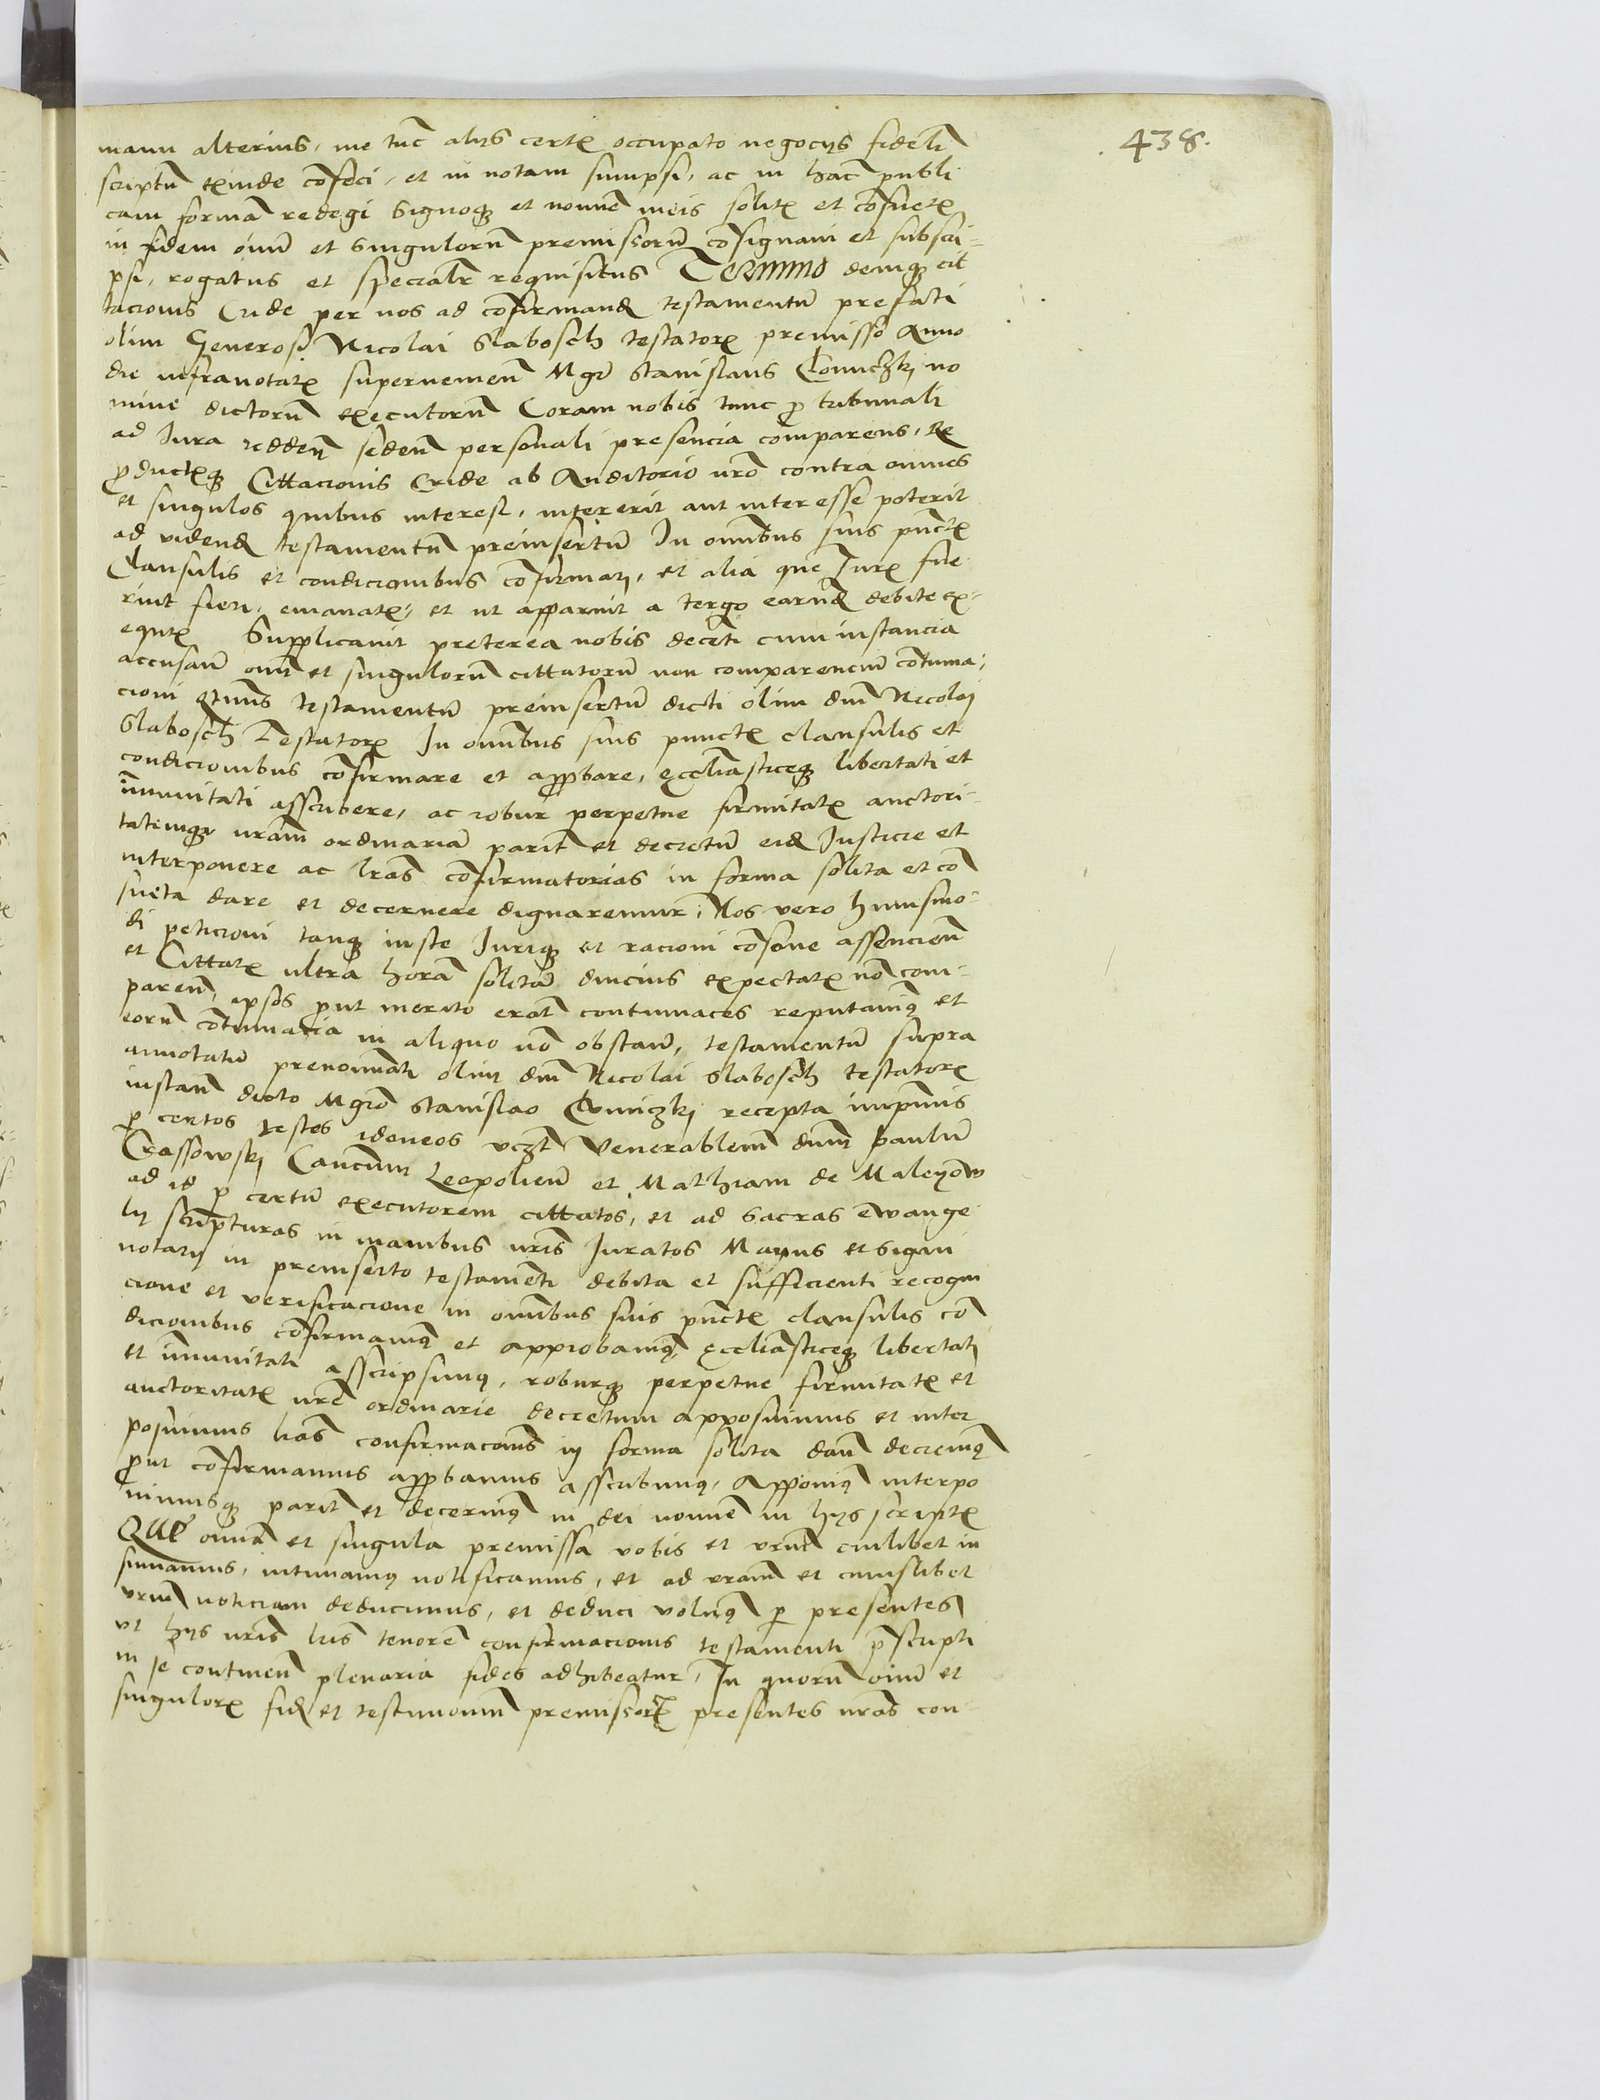 438.
manu alterius, me tūc alijs certꝭ occupato negocijs fideli
scriptū exinde cōfeci, et in notam sumpsi, ac in hāc publi
cam formā redegi Signoqꝫ et nomīe meis solitꝭ et cōsuetꝭ
in fidem oīm̄ et singulorū premissorū cōsignaui et subscri-
psi, rogatus et specialr̄ requisitus Termino deniqꝫ cit
tacionis Cride per nos ad cōfirmand̄ testamentū prefati
olim Generosi Nicolai Slabosch testatorꝭ premisso Anno
die infranotatꝭ superuenien̄ Mgr̄ Stanislaus Clouiczkj no
mine dictorū executorū Coram nobis tunc ꝓ tribunali
ad Iura redden̄ seden̄ personali presencia comparens, Re
ꝓductꝭqꝫ Cittacionis Cride ab Auditorio nr̄o contra omnes
et singulos quibus interest, intererit aut interesse poterit
ad videnđ testamentū preinsertū In oīm̄bus suis pūctꝭ
Clausulis et condicionibus cōfirmari, et alia que Iurꝭ fue
rint fieri, emanatꝭ, et ut apparuit a tergo earundꝫ debite ex-
equtꝭ Supplicauit preterea nobis decēti cum instancia
accusan̄ oīm̄ et singulorū cittatorū non comparenciū cōtuma-
ciam qtenus testamentū preinsertū dicti olim dn̄i Nicolaj
Slabosch Testatorꝭ In om̄ibus suis punctꝭ clausulis et
condicionibus cōfirmare et approbare, ęccliasticeqꝫ libertati et
im̄unitati asscribere, ac robur perpetue firmitatꝭ auctori-
tatemqꝫ nr̄am ordinariā parit̄ et decretū eidꝫ Iusticie et
interponere ac lr̄as cōfirmatorias in forma solita et cō
sueta dare et decernere dignaremur, Nos vero huiusmo-
di peticioni tanqꝫ iuste Iuriqꝫ et racioni cōsone assencien̄
et Cittatꝭ ultra horā solitā diucius expectatꝭ nō com-
paren̄, ipsos ꝓut merito erāt contumaces reputauimꝰ et
eorū cōtumacia in aliquo nō obstan̄, testamentū supra
annotatū prenoīmati olim dn̄i Nicolai Slabosch testatorꝭ
instan̄ dicto Mgr̄o Stanislao Clouiczkj recepta inprimis
ꝑ certos testes idoneos vczt̄ Venerabilem dn̄m Paulū
Crassowskj Canc̄um Leopolien̄ et Mathiam de Maleyow
ad id ꝑ certū executorem cittatos, et ad Sacras Ewange
lij scripturas in manibus nr̄is Iuratos Manus et Signi
notarij in preinserto testamēti debita et sufficienti recogni
cione et verificacione in om̄ibus suis pūctꝭ clausulis cō
dicionibus cōfirmauimꝰ et approbauimꝰ, ęccliasticeqꝫ libertati
et im̄unitati asscripsimꝰ, roburqꝫ perpetue firmitatꝭ et
auctoritatꝭ nr̄e ordinarie decretum apposuimus et inter
posuimus lr̄as confirmacōnis in forma solita dan̄ decreuimꝰ
ꝓut cōfirmamus approbamus asscribimꝰ, Apponimꝰ interpo
nimusqꝫ parit̄ et decernimꝰ in dei nomīe in hijs scriptꝭ
QUE om̄ia et singula premissa vobis et vr̄um cuilibet in
sinuamus, intimamꝰ notificamus, et ad vr̄am et cuiuslibet
vr̄um noticiam deducimus, et deduci volumꝰ ꝑ presentes
ut hijs nr̄is lr̄is tenorē confirmacionis testamenti p̄scripti
in se continen̄ plenaria fides adhibeatur, In quorū oīm̄ et
singulorꝭ fidꝫ et testimonium premissorꝭ presentes nr̄as con-